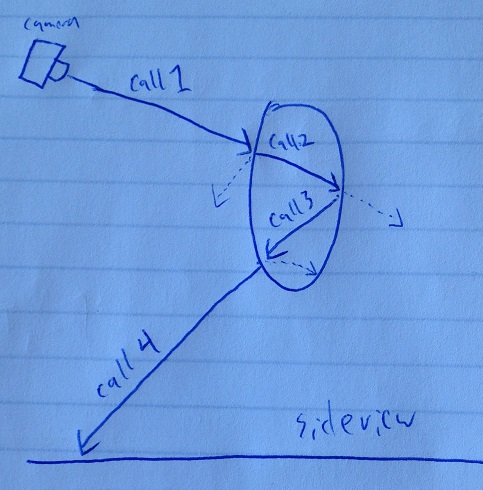 camera
call 1
call 2
call 3
call 4
sideview